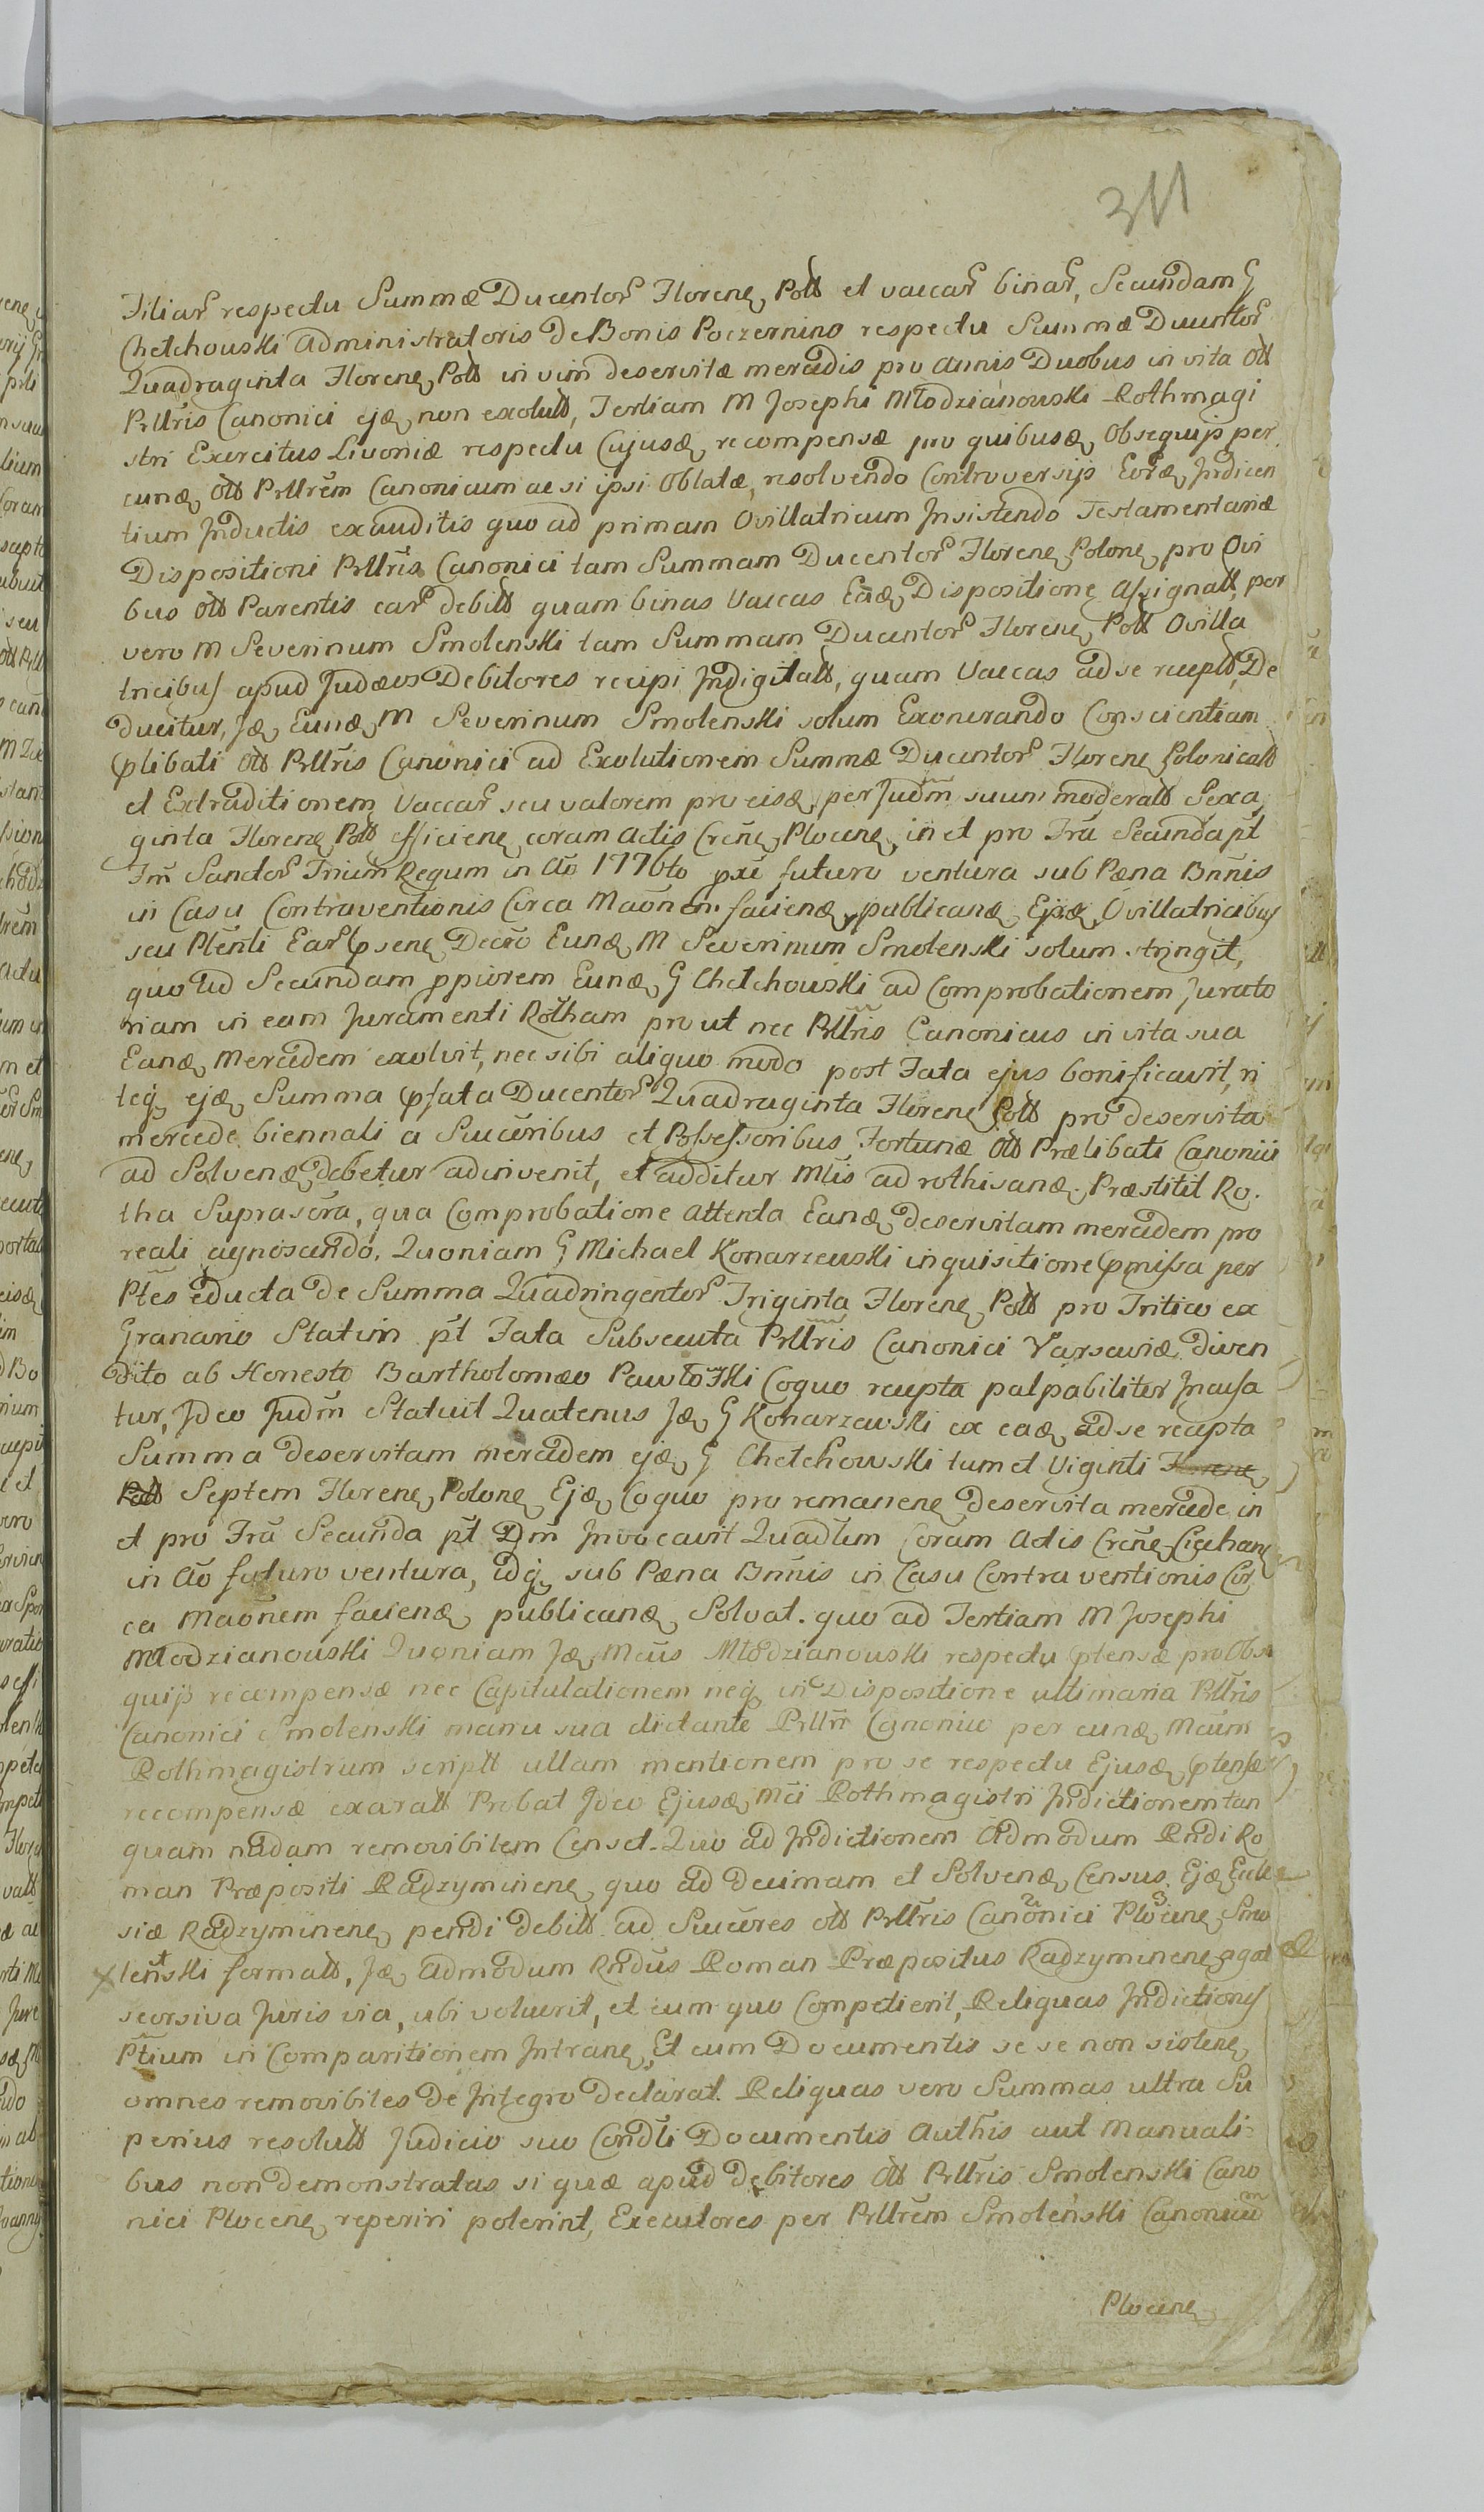 311
Filiar respectu Summæ Ducentor Florenę Poll et vaccar binar, Secundam G
Chelchowski Administratoris De Bonis Poczernino respectu Summæ Ducentor
Quadraginta Florenę Poll in vim deservitæ mercedis pro annis Duobus in vita Oll
Pllris Canonici ejdę non exolutt, Tertiam M Josephi Młodzianowski Rothmagi
stri Exercitus Livoniæ respectu Cujusdę recompensæ pro quibusdę Obsequijs per
eundę Oll Pllrem Canonicum ac si ipsi Oblatæ, resolvendo Controversijs Eordę Indicen
tium Inductis exauditis quo ad primam Ovillatricum Insistendo Testamentariæ
Dispositioni Pllris Canonici tam Summam Ducentor Florenę Polonę pro Ovi
bus Oll Parentis ear debitt quam binas Vaccas Eadę Dispositionę Assignatt, per
vero M Severinum Smolenski tam Summam Ducentor Florenę Poll Ovilla
tricibus apud Judæos Debitores recipi Indigitatt, quam Vaccas ad se receptt, De
ducitur, Idę Eundę M Severinum Smolenski solum Exonerando Conscientiam
plibati Oll Pllris Canonici ad Exolutionem Summæ Ducentor Florenę Polonicall
et Extraditionem Vaccar seu valorem pro eisdę per Judm suum moderatt Sexa
ginta Florenę Poll efficienę coram Actis Crenę Plocenę in et pro Fra Secunda pt
Fm Sanctor Trium Regum in Ao 1776to pxe futuro ventura sub Pæna Bnnis
in Casu Contraventionis Circa Maonem faciendę publicandę Ejsdę Ovillatricibus
seu Pltenti Ear psenę Decro Eundę M Severinum Smolenski solum stringit,
quo ad Secundam ppiorem Eundę G Chelchowski ad Comprobationem Jurato
riam in eam Juramenti Rotham prout nec Pllris Canonicus in vita sua
Eandę Mercedem exolvit, nec sibi aliquo modo post Fata ejus bonificavit, ri
teq ejdę Summa psata Ducentor Quadraginta Florenę Poll pro deservita
mercede biennali a Succoribus et Possessoribus Fortunæ Oll Prælibati Canonici
ad Solvendę debetur adinvenit, et additur Mtis ad rothisandę. Præstitit Ro.
tha Suprascra, qua Comprobatione Attenta Eandę deservitam mercedem pro
reali agnoscendo. Quoniam G Michael Konarzewski inquisitione pmissa per
Ptes educta de Summa Quadringentor Triginta Florenę Poll pro Tritico ex
Granario Statim pt Fata Subsecuta Pllris Canonici Varsaviæ diven
dito ab Honesto Bartholomæo Pawłoski Coquo recepta palpabiliter Incusa
tur, Ideo Judm Statuit Quatenus Idę G Konarzewski ex eadę ad se recepta
Summa deservitam mercedem ejdę G Chelchowski tum et Viginti Florenę
Poll Septem Florenę Polonę Ejdę Coquo pro remanenę deservita mercede in
et pro Fra Secunda pt Dm Invocavit Quadtem Coram Actis Crenę Ciechanę
in Ao futuro ventura, idq sub Pæna Bnnis in Casu Contraventionis Cir
ca Maonem faciendę publicandę Solvat. quo ad Tertiam M Josephi
Młodzianowski Quoniam Idę Mcus Młodzianowski respectu ptensæ pro Obse
quijs recompensæ nec Capitulationem neq in Dispositione ultimaria Pllris
Canonici Smolenski manu sua dictante Pllri Canonico per eundę Mcum
Rothmagistrum scriptt ullam mentionem pro se respectu Ejusdę ptensæ
recompensæ exaratt Probat Ideo Ejusdę Mci Rothmagistri Indictionem tan
quam nudam removibilem Censet. Quo ad Indictionem Admodum Rndi Ro
man Præpositi Radzyminenę quo ad decimam et Solvendę Census Ejdę Eccle
siæ Radzyminenę pendi debitt ad Succores Oll Pllris Canonici Plocenę Smo
lenski formatt, Idę Admodum Rndus Roman Præpositus Radzyminenę agat
seorsiva Juris via, ubi voluerit, et cum quo Competierit, Reliquas Indictiones
Ptium in Comparitionem Intranę, Et cum Documentis se se non sistenę
omnes removibiles de Integro declarat. Reliquas vero Summas ultra Su
perius resolutt Judicio suo Condti Documentis Authis aut Manuali-
bus non demonstratas si quæ apud debitores Oll Pllris Smolenski Cano
nici Plocenę reperiri poterint, Executores per Pllrem Smolenski Canonicum
Plocenę